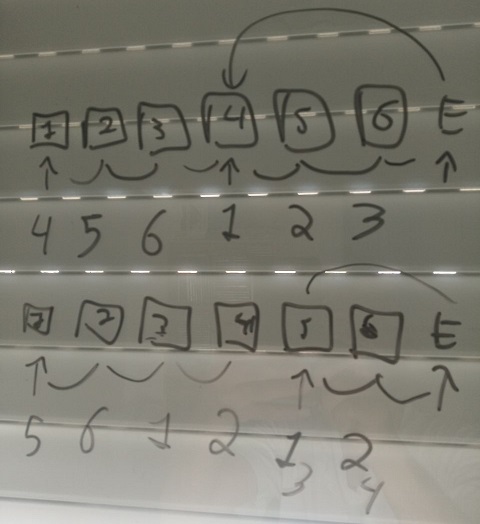 1 2 3 4 5 6 E
4 5 6 1 2 3
1 2 3 4 5 6 E
5 6 1 2 1 2
3 4